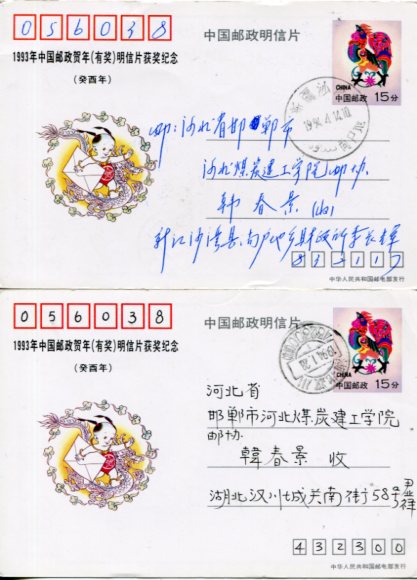 056038
中国邮政明信片
1993年中国邮政贺年(有奖)明信片获奖纪念
(癸酉年)
CHINA
中国邮政 15分
邮:河北省邯郸市
河北煤炭建工学院邮协
韩春景
中华人民共和国邮电部发行
056038
中国邮政明信片
1993年中国邮政贺年(有奖)明信片获奖纪念
(癸酉年)
CHINA
中国邮政 15分
河北省
邯郸市河北煤炭建工学院
邮协
韓春景 收
湖北汉川城关南街58号
432300
中华人民共和国邮电部发行